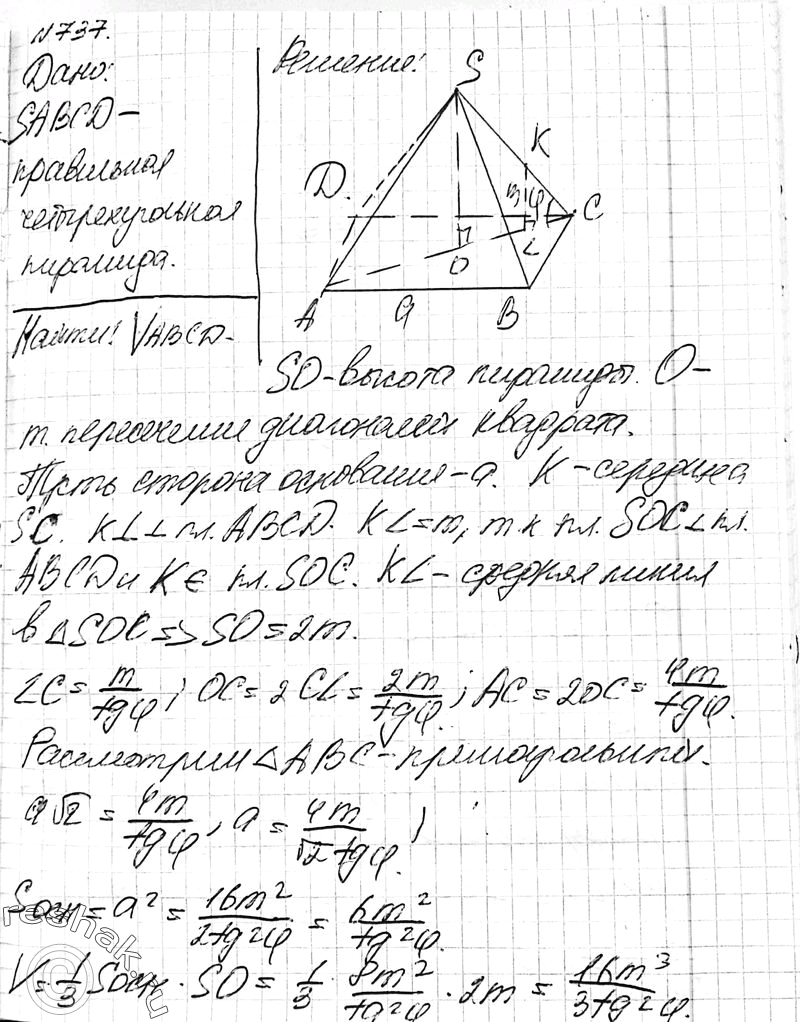 N737.
Дано:
SABCD–
правильная
четырехугольная
пирамида.
Найти: VABCD-
Решение:
S
K
D
m φ
C
L
O
A
a
B
SO-высота пирамиды. O-
т. пересечения диагоналей квадрата.
Пусть сторона основания-a. K-середина
SC. KL⊥ пл. ABCD. KL=m, т.к пл. SOC⊥пл.
ABCD и K∈ пл. SOC. KL-средняя линия
в △SOC=>SO=2m.
LC=m/tgφ; OC=2CL=2m/tgφ; AC=2OC=4m/tgφ.
Рассмотрим △ABC-прямоугольный.
a√2=4m/tgφ, a=4m/√2tgφ;
Sосн=a²=16m²/2tg²φ=6m²/tg²φ.
V=1/3 Sосн·SO=1/3·8m²/tg²φ·2m=16m³/3tg²φ.
reshak.ru